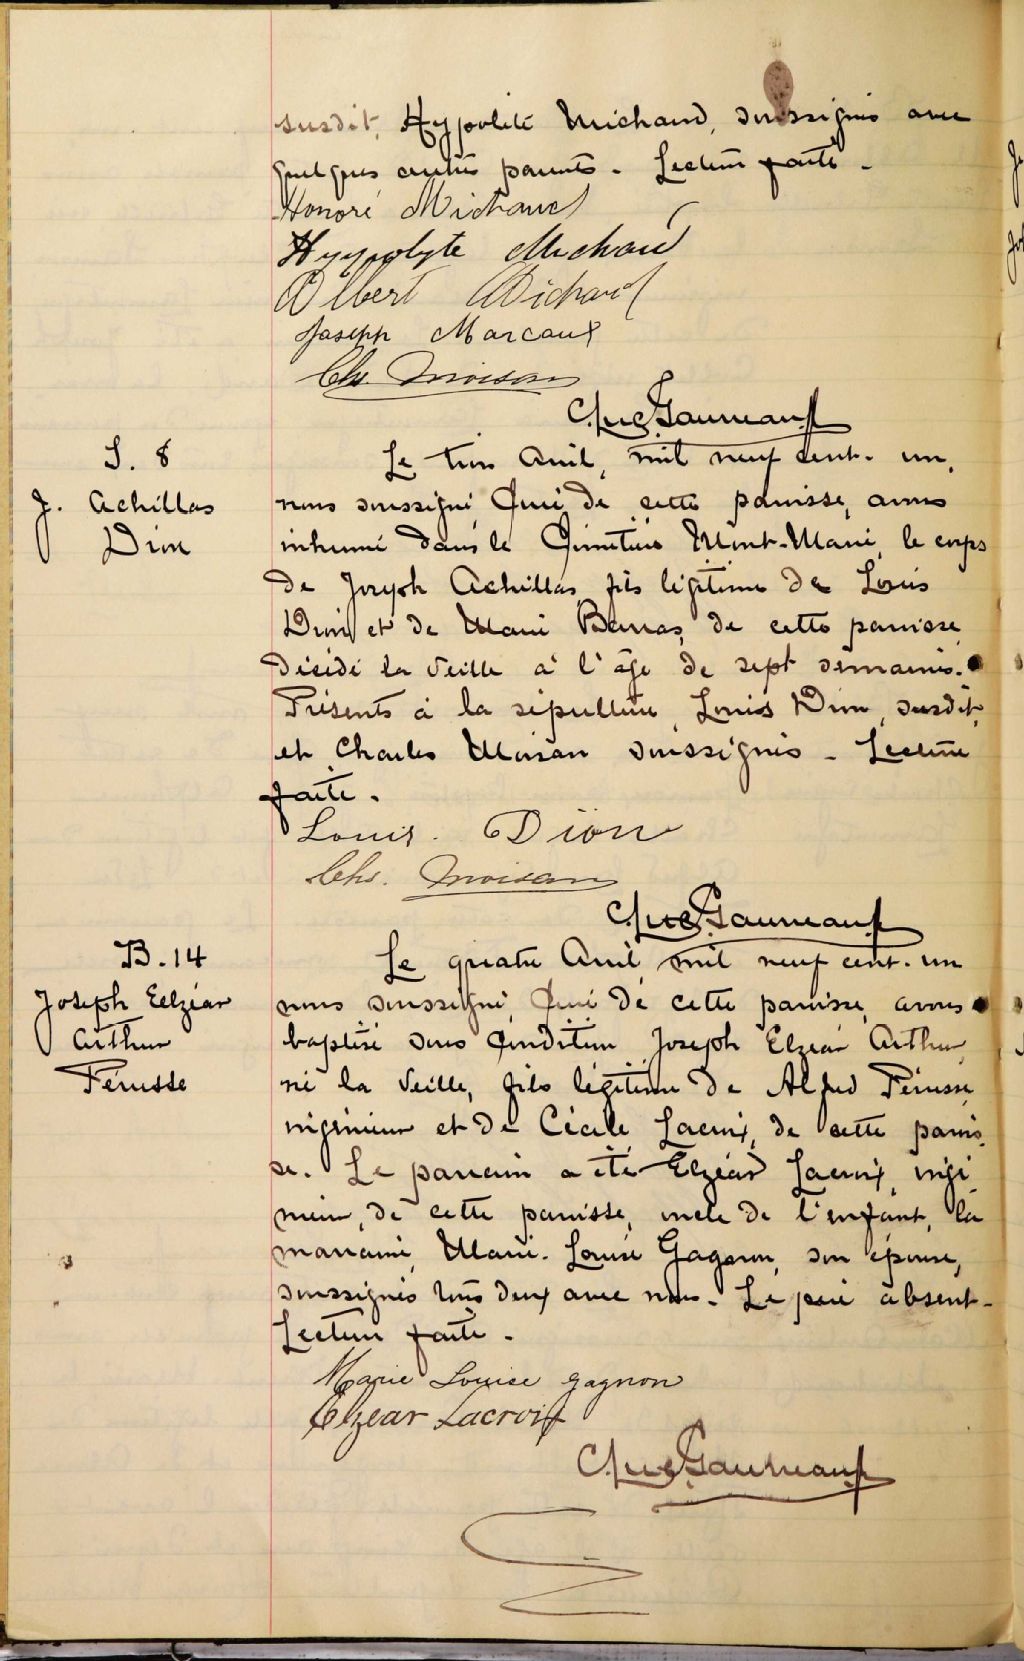 susdit, Hypolite Michaud, soussignés avec
quelques autres parents. Lecture faite.
Honoré Michaud
Hyppolyte Michaud
Albert Michaud
Joseph Marcoux
Chs. Moisan
Gauvreau ptre
S. 8
J. Achillas
Dion
Le trois Avril, mil neuf cent-un,
nous soussigné Curé de cette paroisse, avons
inhumé dans le Cimetière Mont-Marie, le corps
de Joseph Achillas, fils légitime de Louis
Dion et de Marie Barras, de cette paroisse
décédé la veille à l'âge de sept semaines.
Présents à la sépulture, Louis Dion, susdit,
et Charles Moisan soussignés - Lecture
faite.
Louis Dion
Chs. Moisan
Gauvreau ptre
B. 14
Joseph Elzéar
Arthur
Pérusse
Le quatre Avril mil neuf cent-un
nous soussigné, Curé de cette paroisse, avons
baptisé sous Condition Joseph Elzéar Arthur,
né la veille, fils légitime de Alfred Pérusse,
ingénieur et de Cécile Lacroix, de cette parois
se. Le parrain a été Elzéar Lacroix, ingé
nieur, de cette paroisse, oncle de l'enfant, la
marraine, Marie-Louise Gagnon, son épouse,
soussignés tous deux avec nous. Le père absent.
Lecture faite.
Marie Louise gagnon
Elzear Lacroix
Gauvreau ptre